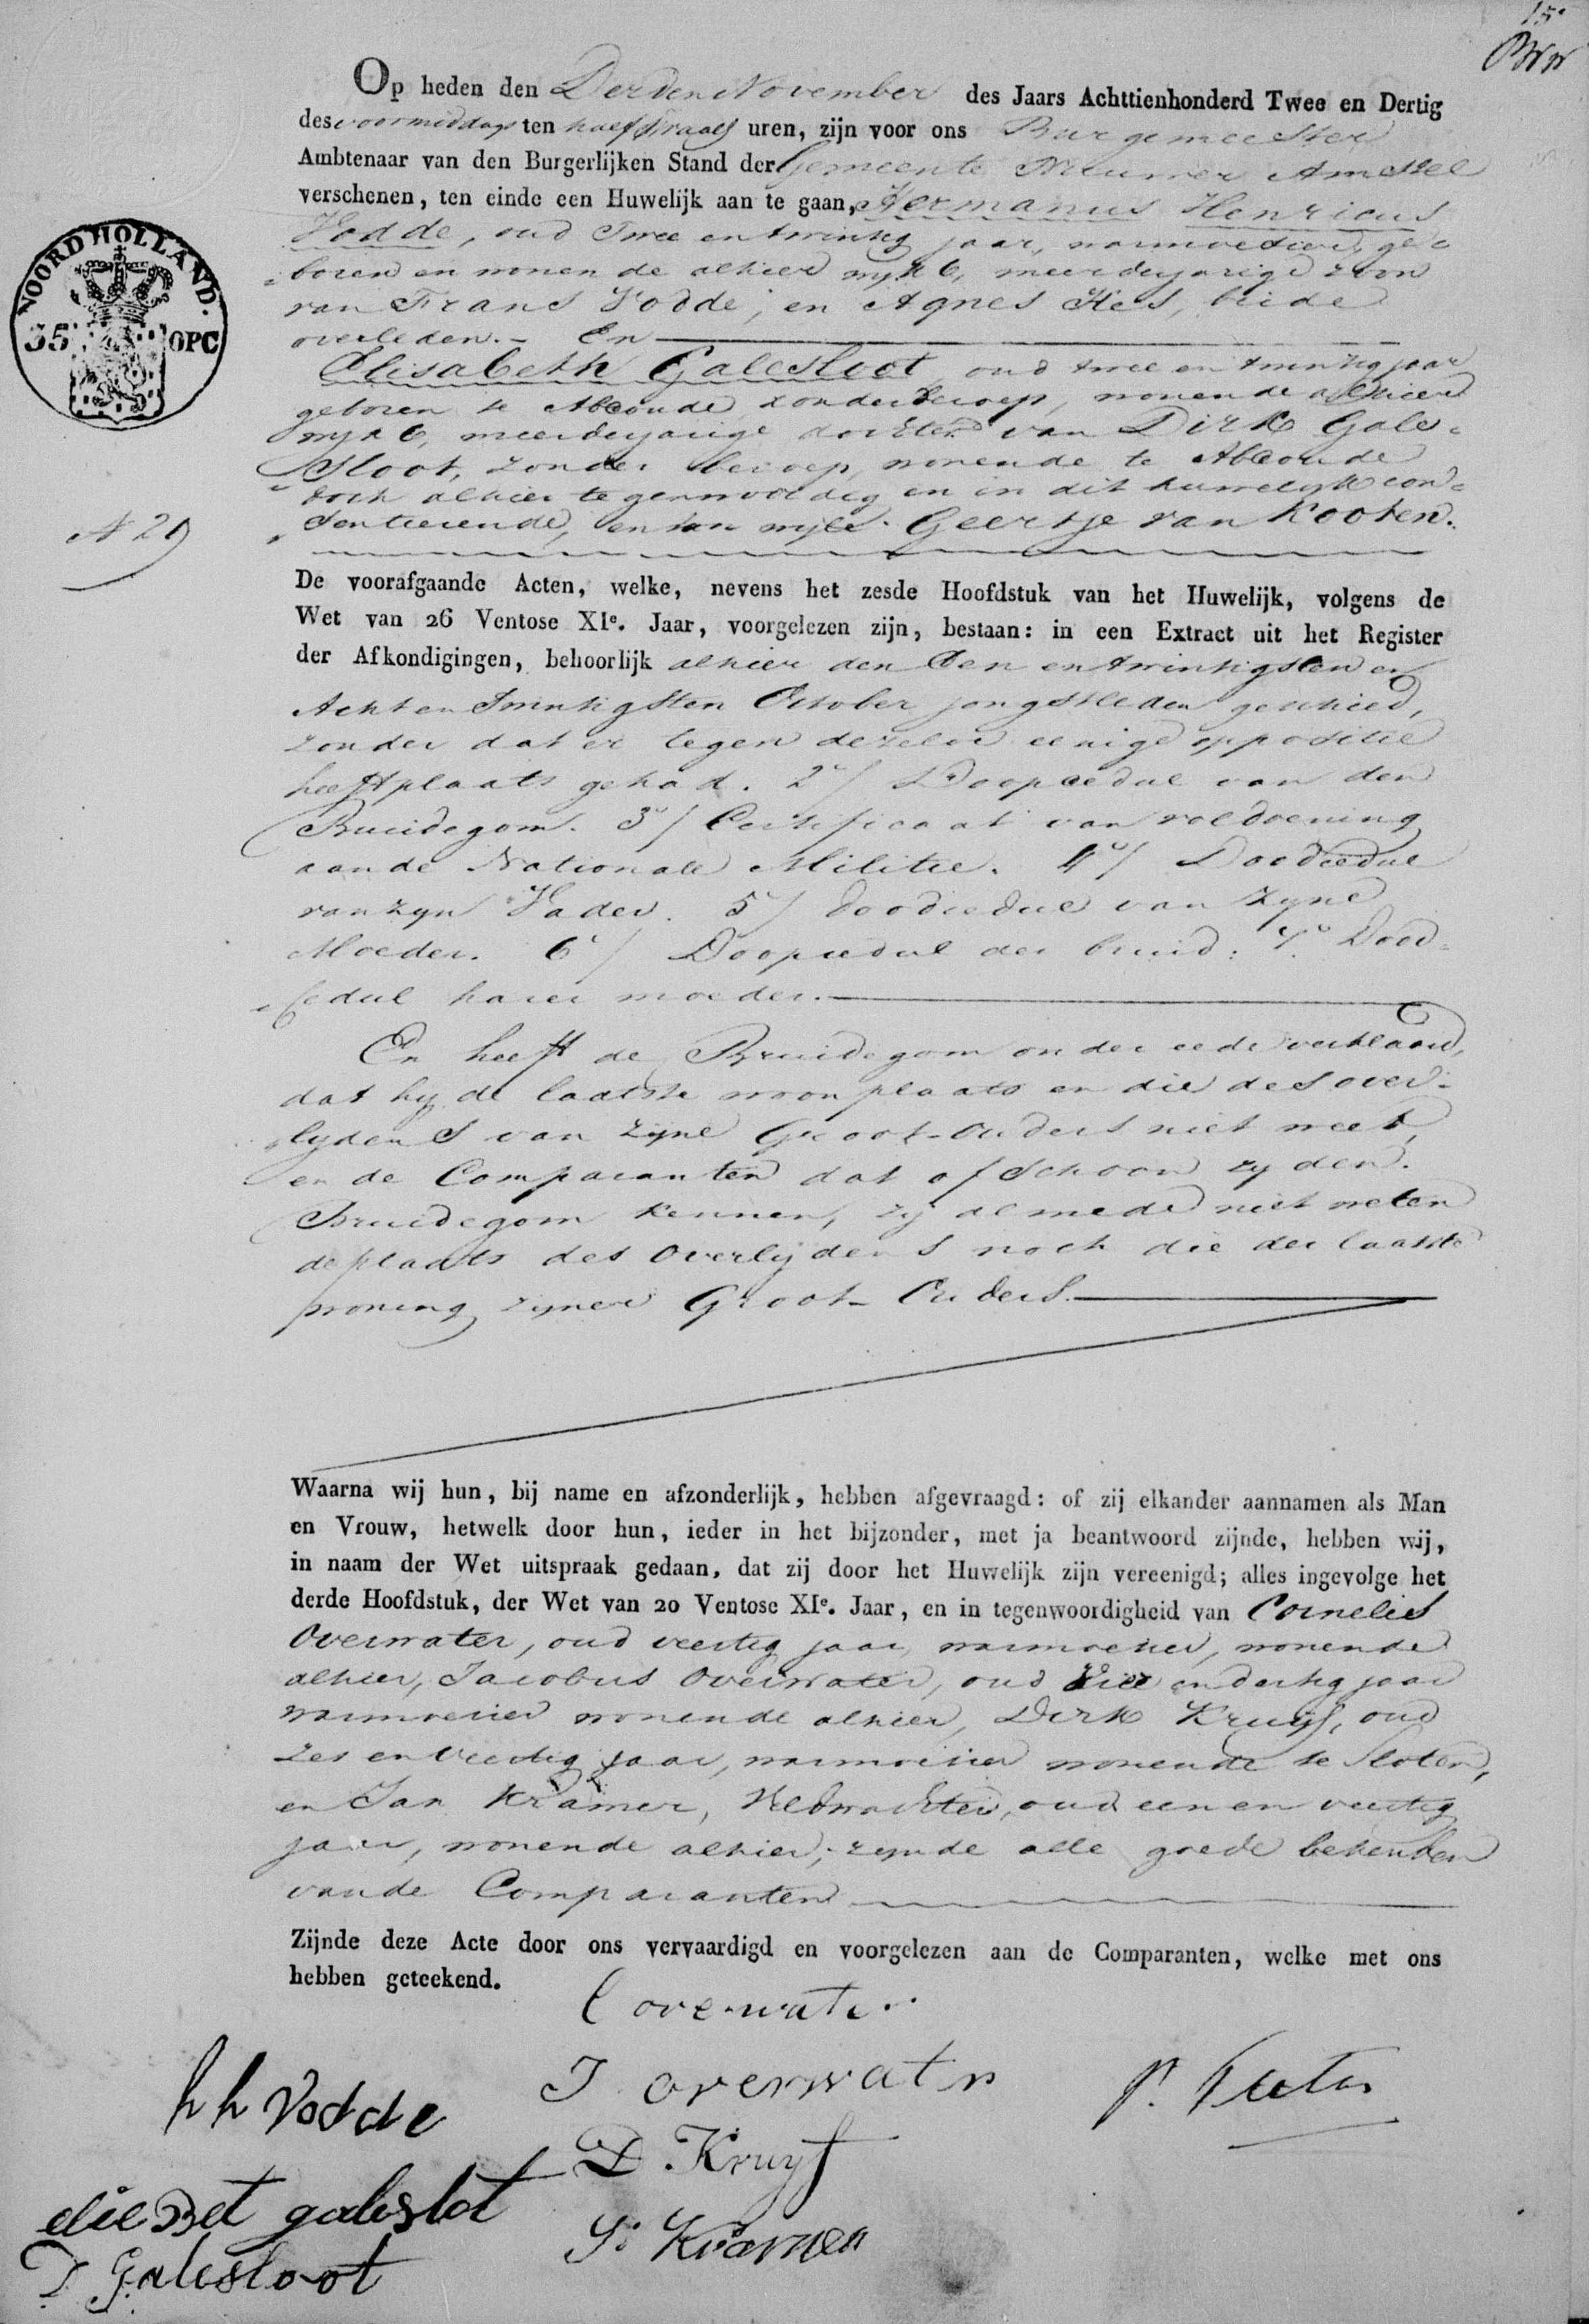 15e
Op heden den Derden November des Jaars Achttienhonderd Twee en Dertig
des voormiddags ten half twaalf uren, zijn voor ons Burgemeester
Ambtenaar van den Burgerlijken Stand der Gemeente Nieuwer Amstel
verschenen, ten einde een Huwelijk aan te gaan, Hermanus Henricus
Vodde, oud Twee en twintig jaar, warmoesier, ge=
boren en wonende alhier wyk 6, meerderjarige zoon
van Frans Vodde, en Agnes Hes, beide
overleden. – En
Elisabeth Galesloot oud twee en twintig jaar
geboren te Abcoude, zonder beroep, wonende alhier
wyk 6, meerderjarige dochter van Dirk Gale=
sloot, zonder beroep, wonende te Abcoude
doch alhier tegenwoordig en in dit huwelyk con=
senterende, en van wyle Geertje van Kooten.
N 29
NOORD HOLLAND.
35 OPC
De voorafgaande Acten, welke, nevens het zesde Hoofdstuk van het Huwelijk, volgens de
Wet van 26 Ventose XIe. Jaar, voorgelezen zijn, bestaan: in een Extract uit het Register
der Afkondigingen, behoorlijk alhier den Een en twintigsten en
Acht en Twintigsten October jongstleden geschied,
zonder dat er tegen dezelve eenige oppositie
heeft plaats gehad. 2o/ Doopcedul van den
Bruidegom. 3o/ Certificaat van voldoening
aan de Nationale Militie. 4o/ Doodcedul
van zyn Vader. 5o/ doodcedul van zyne
Moeder. 6o/ Doopcedul der bruid: 7o. Dood=
cedul harer moeder.
En heeft de Bruidegom onder eede verklaard,
dat hy de laatste woonplaats en die des over=
lydens van zyne Groot-Ouders niet weet,
en de Comparanten dat ofschoon zy den
Bruidegom kennen, zy almede niet weten
de plaats des Overlydens noch die der laatste
woning zyner Groot-Ouders.
Waarna wij hun, bij name en afzonderlijk, hebben afgevraagd: of zij elkander aannamen als Man
en Vrouw, hetwelk door hun, ieder in het bijzonder, met ja beantwoord zijnde, hebben wij,
in naam der Wet uitspraak gedaan, dat zij door het Huwelijk zijn vereenigd; alles ingevolge het
derde Hoofdstuk, der Wet van 20 Ventose XIe. Jaar, en in tegenwoordigheid van Cornelis
Overwater, oud veertig jaar, warmoesier, wonende
alhier, Jacobus Overwater, oud Vier en dertig jaar
warmoesier wonende alhier, Dirk Kruyf, oud
zes en Veertig jaar, warmoesier wonende te Sloten,
en Jan Kramer, Veldwachter, oud een en veertig
jaar, wonende alhier; zynde alle goede bekenden
van de Comparanten
Zijnde deze Acte door ons vervaardigd en voorgelezen aan de Comparanten, welke met ons
hebben geteekend.
C overwater
h h Vodde
J overwater
D. Kruyf
eliesBet galeslot
J. Kramer
D Galesloot